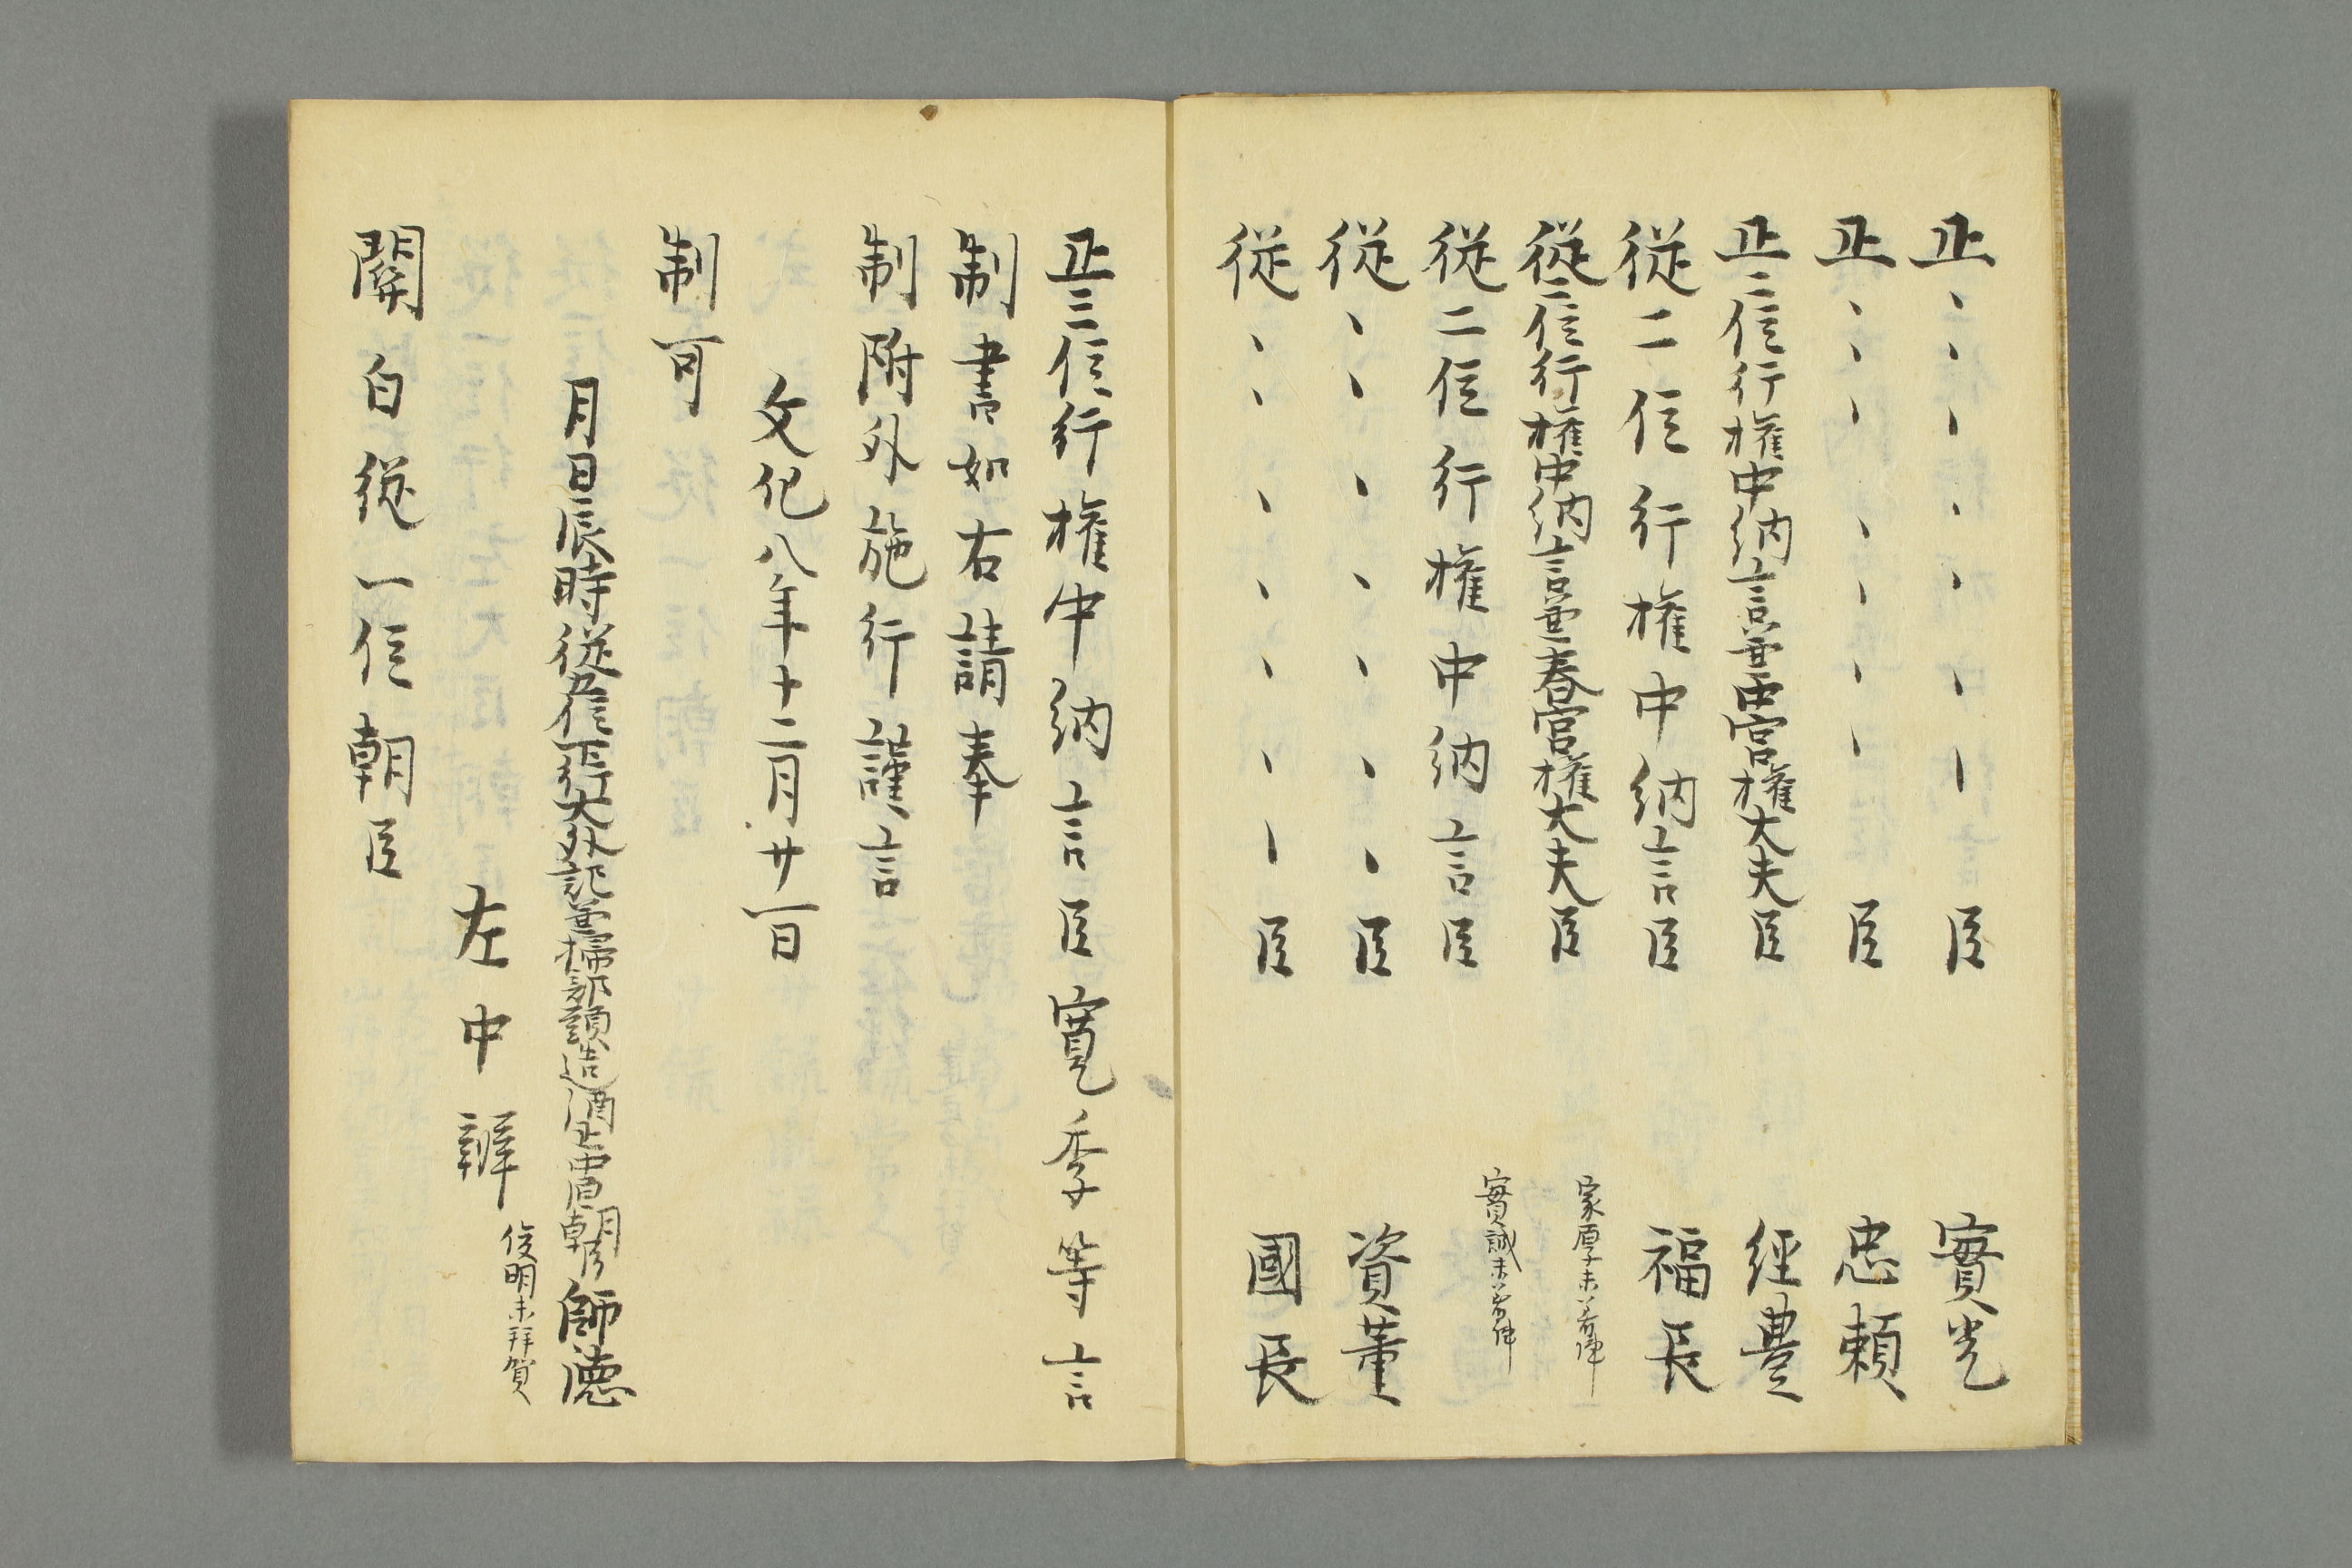 正、、、、、、、臣 實光
正、、、、、、臣 忠頼
正二位行権中納言兼中宮権大夫臣 經豊
従二位行権中納言臣 福長
従二位行権中納言兼春宮権大夫臣 家厚未着陣
従二位行権中納言臣 實誠未着陣
従、、、、、、、臣 資董
従、、、、、、、臣 國長
正三位行権中納言臣寛季等言
制書如右請奉
制附外施行謹言
文化八年十二月廿一日
制可
月日辰時従五位下行大外記兼掃部頭造酒正中原朝臣師徳
左中辨 俊明未拝賀
關白従一位朝臣